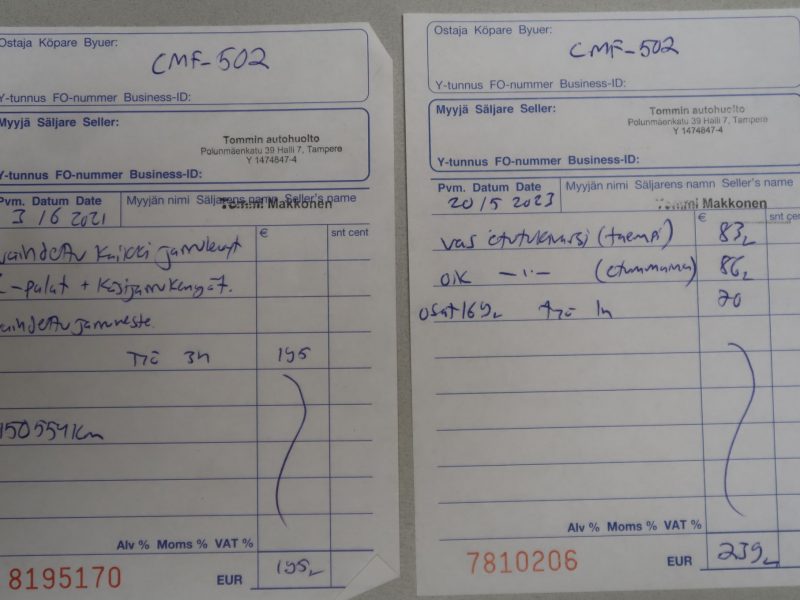 Ostaja Köpare Byuer:
CMF-502
Y-tunnus FO-nummer Business-ID:
Myyjä Säljare Seller:
Tommin autohuolto
Polunmäenkatu 39 Halli 7, Tampere
Y 1474847-4
Y-tunnus FO-nummer Business-ID:
Pvm. Datum Date
Myyjän nimi Säljarens namn Seller's name
3/6 2021
Tommi Makkonen
€
snt cent
vaihdettu kaikki jarrulevyt
-palat + käsijarrukengät.
vaihdettu jarruneste.
Työ 3h 195
150554km
Alv % Moms % VAT %
8195170
EUR
195,-
Ostaja Köpare Byuer:
CMF-502
Y-tunnus FO-nummer Business-ID:
Myyjä Säljare Seller:
Tommin autohuolto
Polunmäenkatu 39 Halli 7, Tampere
Y 1474847-4
Y-tunnus FO-nummer Business-ID:
Pvm. Datum Date
Myyjän nimi Säljarens namn Seller's name
20/5 2023
Tommi Makkonen
€
snt cent
vas etutukivarsi (taempi) 83,-
oik -"- (etummainen) 86,-
osat 169,- työ 1h 70
Alv % Moms % VAT %
7810206
EUR
239,-